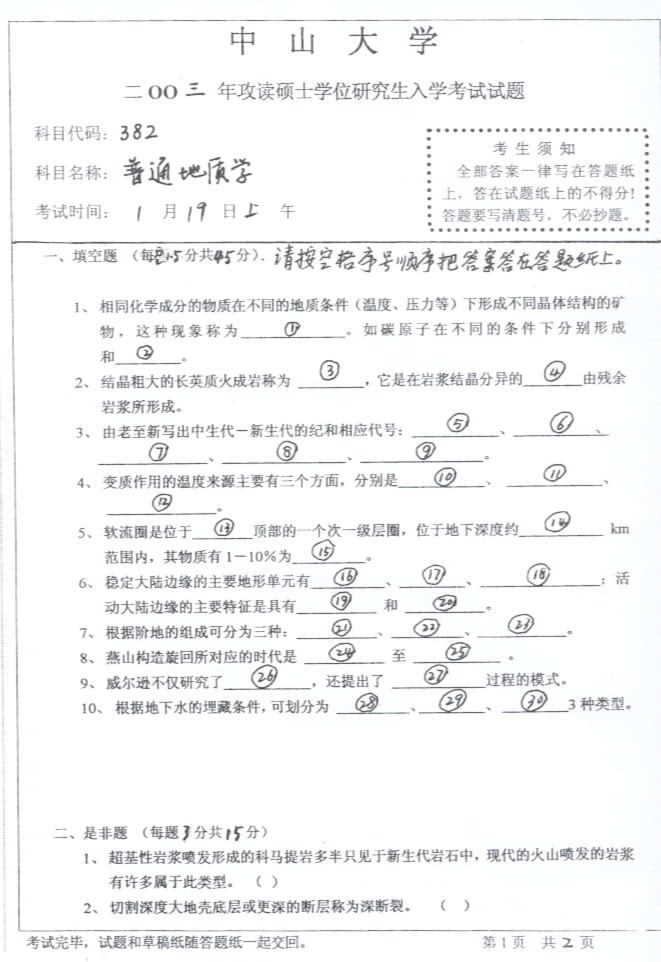 中山大学
二OO三年攻读硕士学位研究生入学考试试题
科目代码：382
科目名称：普通地质学
考试时间：1月19日上午
考生须知
全部答案一律写在答题纸
上，答在试题纸上的不得分！
答题要写清题号，不必抄题。
一、填空题（每空1.5分共45分）．请按空格序号顺序把答案答在答题纸上。
1、相同化学成分的物质在不同的地质条件（温度、压力等）下形成不同晶体结构的矿
物，这种现象称为①。如碳原子在不同的条件下分别形成
和②。
2、结晶粗大的长英质火成岩称为③，它是在岩浆结晶分异的④由残余
岩浆所形成。
3、由老至新写出中生代－新生代的纪和相应代号：⑤、⑥、
⑦、⑧、⑨。
4、变质作用的温度来源主要有三个方面，分别是⑩、⑪、
⑫。
5、软流圈是位于⑬顶部的一个次一级层圈，位于地下深度约⑭km
范围内，其物质有1－10%为⑮。
6、稳定大陆边缘的主要地形单元有⑯、⑰、⑱；活
动大陆边缘的主要特征是具有⑲和⑳。
7、根据阶地的组成可分为三种：㉑、㉒、㉓。
8、燕山构造旋回所对应的时代是㉔至㉕。
9、威尔逊不仅研究了㉖，还提出了㉗过程的模式。
10、根据地下水的埋藏条件，可划分为㉘、㉙、㉚3种类型。
二、是非题（每题3分共15分）
1、超基性岩浆喷发形成的科马提岩多半只见于新生代岩石中，现代的火山喷发的岩浆
有许多属于此类型。（ ）
2、切割深度大地壳底层或更深的断层称为深断裂。（ ）
考试完毕，试题和草稿纸随答题纸一起交回。
第1页 共2页